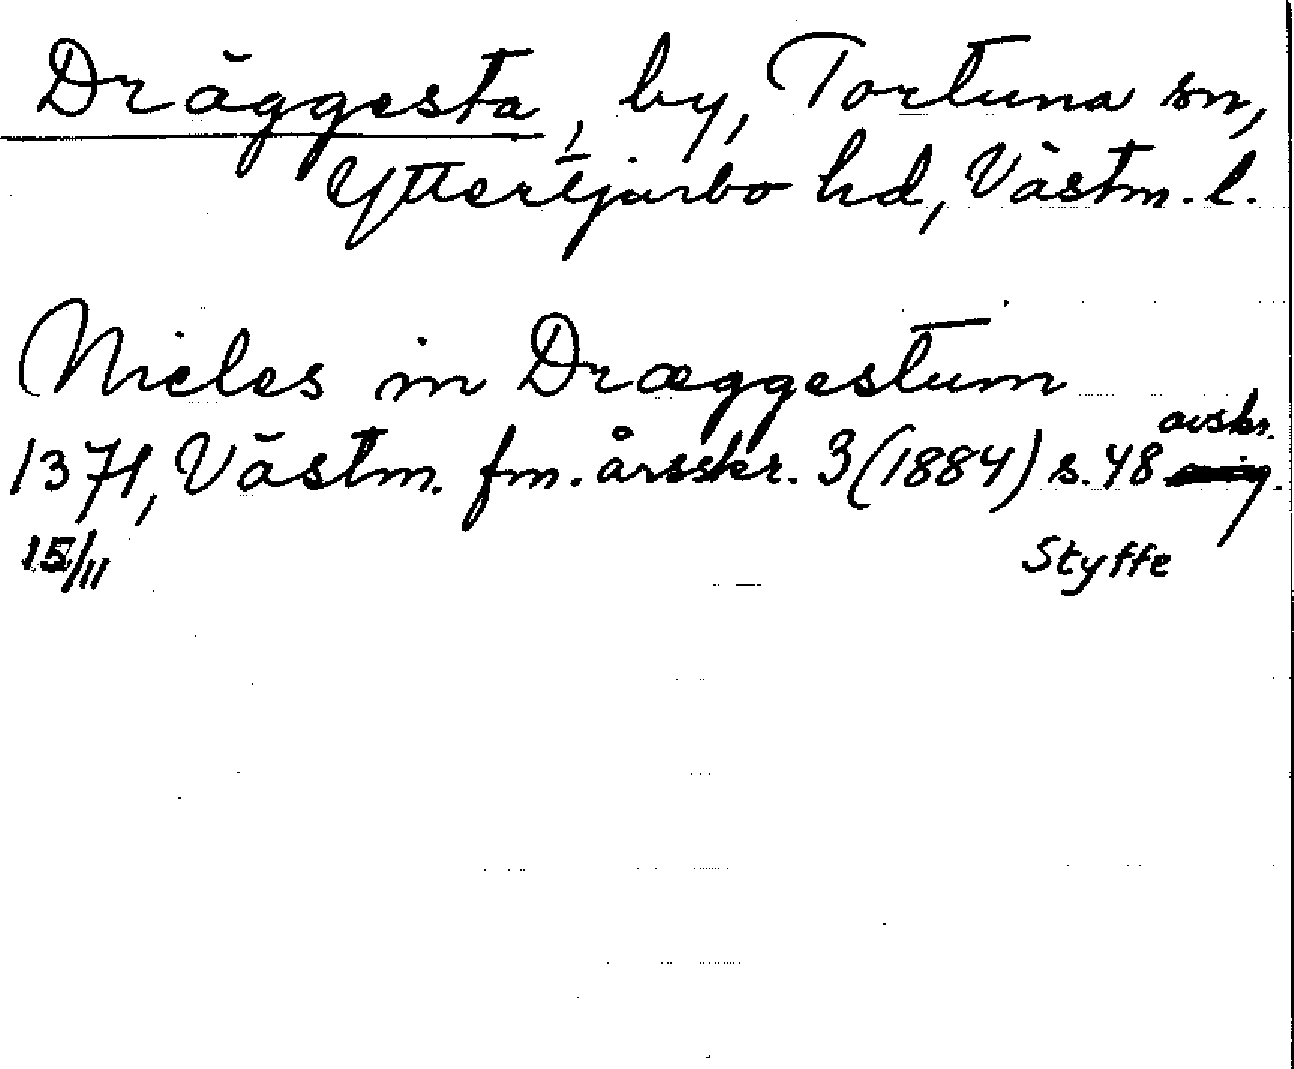 Dräggesta, by, Tortuna sn,
Yttertjurbo hd, Västm. l.
Nicles in Dræggestum
avskr.
1371, Västm. fm. årsskr. 3 (1884) s. 48
15/11 Styffe